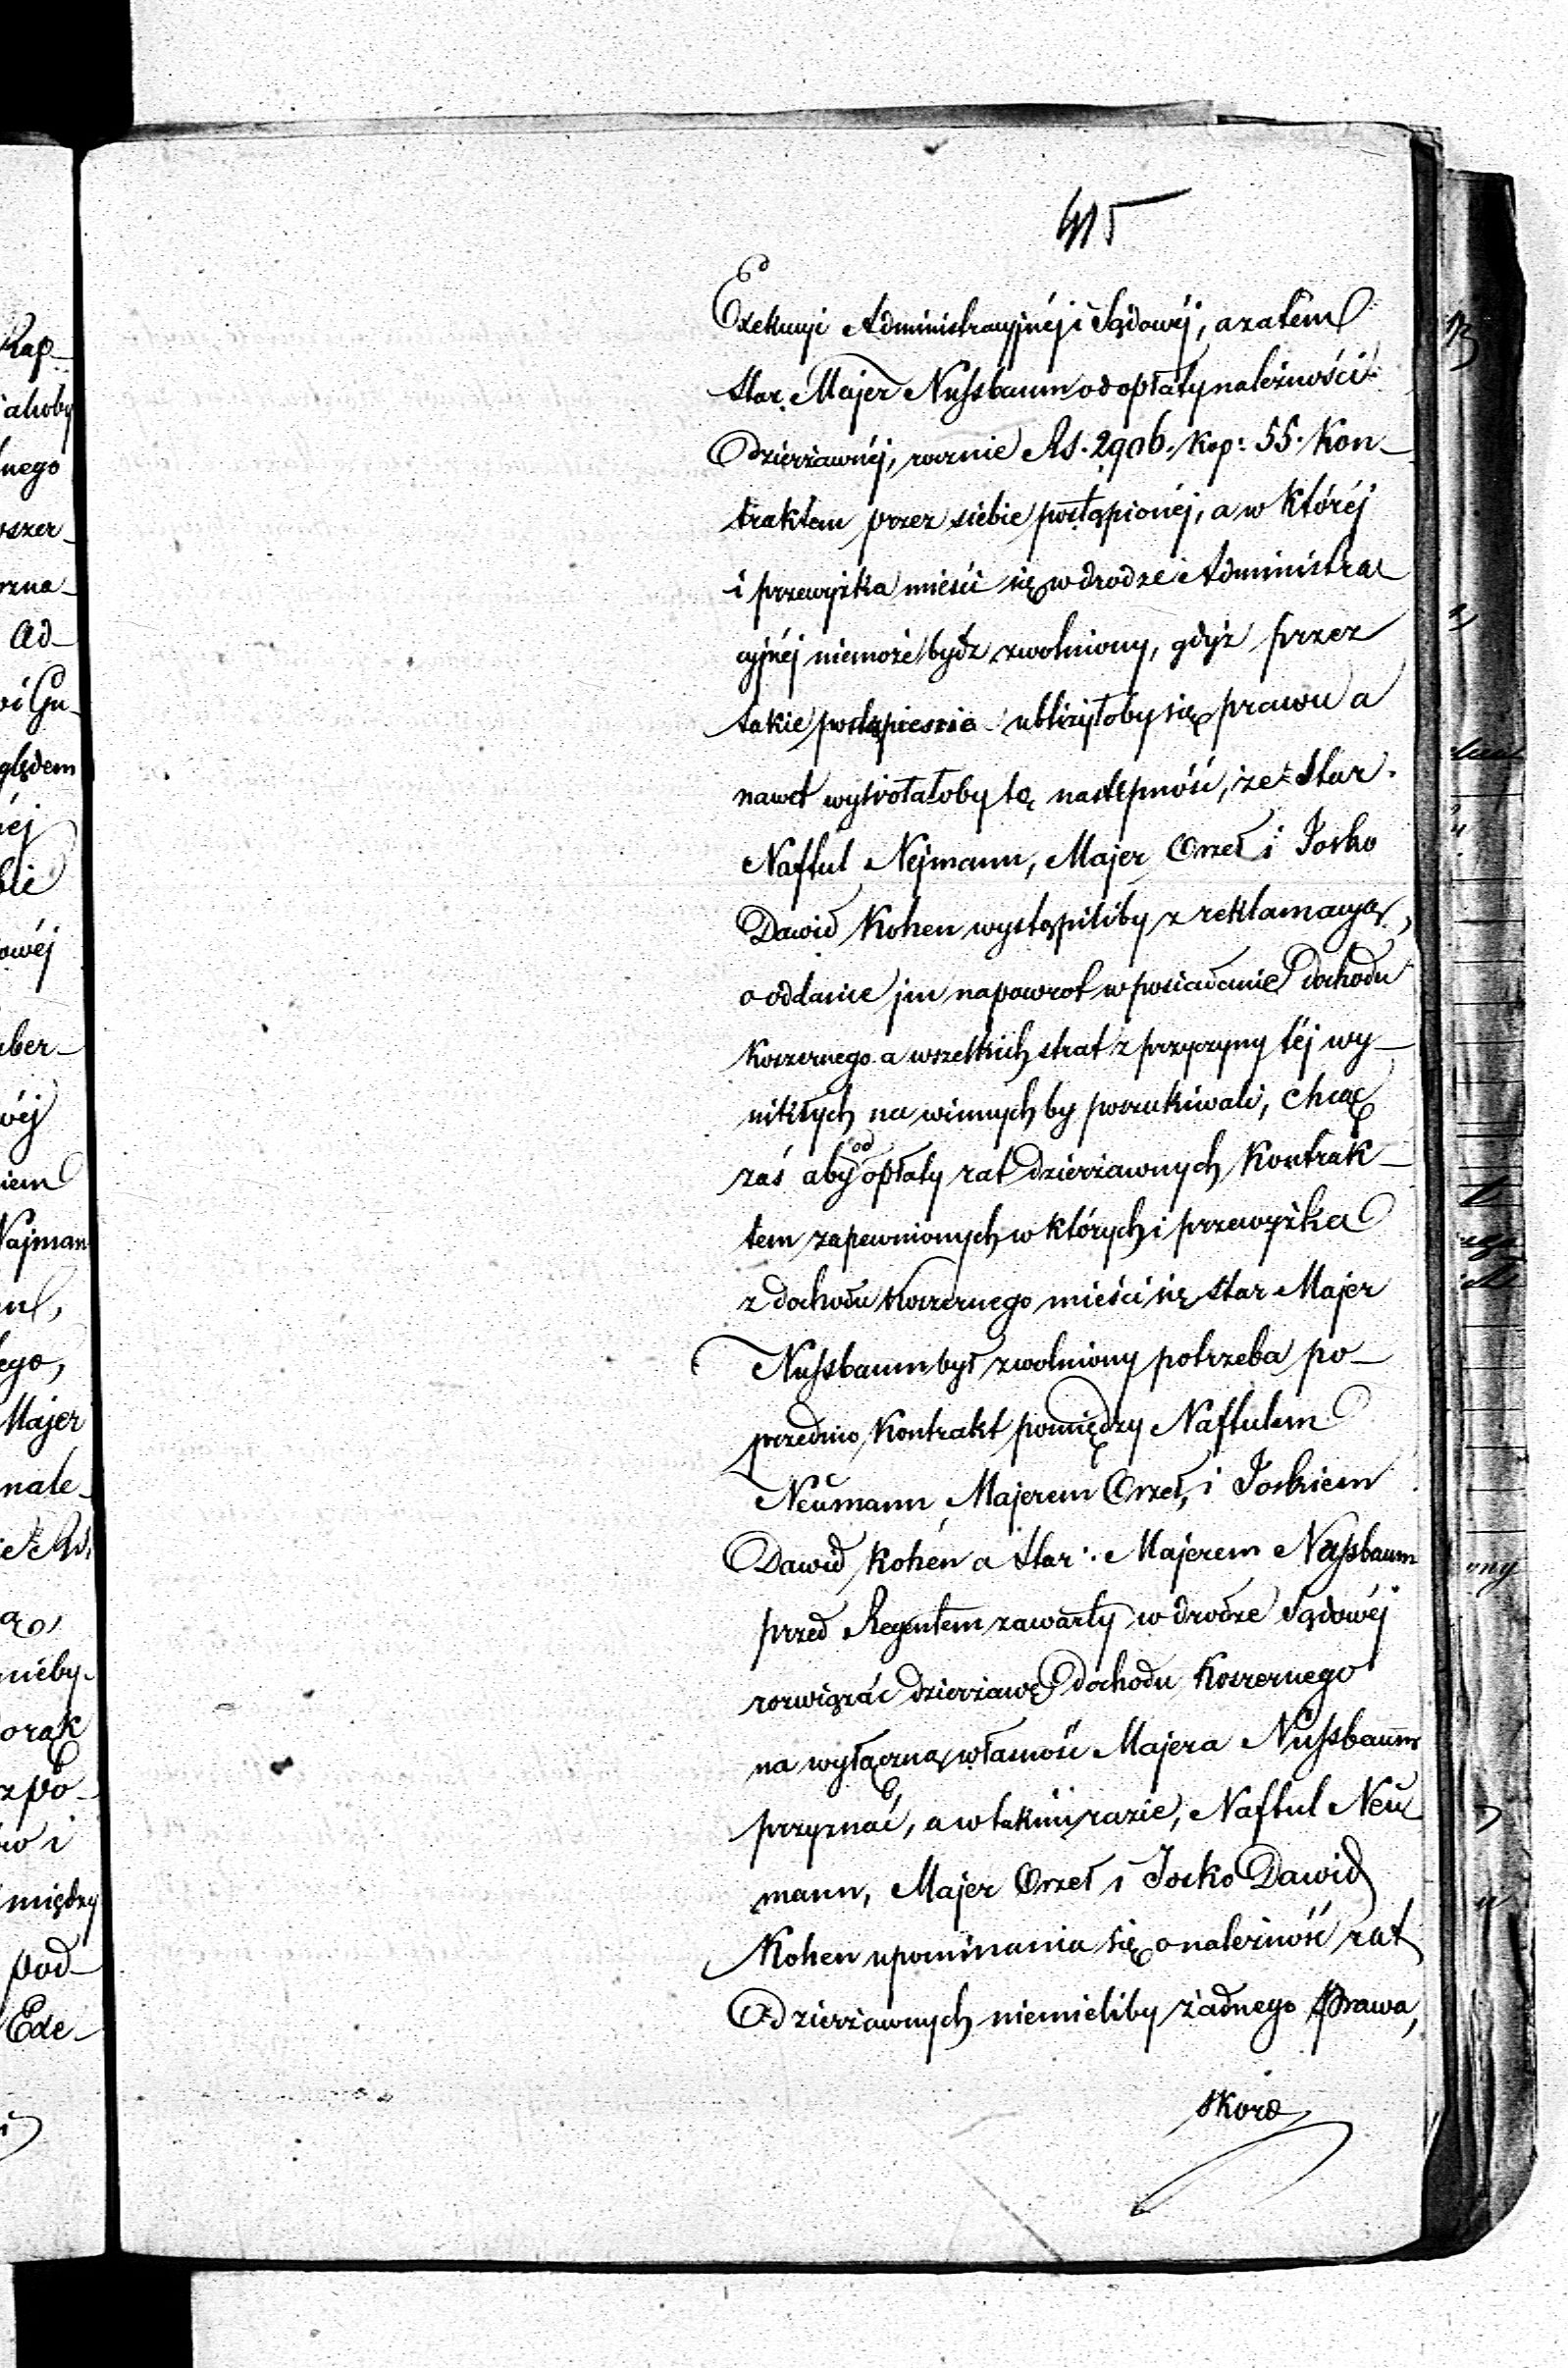 415
Exekucyi Administracyjnéj i Sądowéj, a zatem
Star. Majer Nussbaum od opłaty należności
dzierżawnéj, rocznie Rs. 2906. Kop: 55. Kon-
traktem przez siebie postąpionéj, a w któréj
i przewyżka mieści się w drodze Administra
cyjnéj niemoże bydź zwolniony, gdyż przez
takie postąpienie ubliżyłoby się prawu a
nawet wywołałoby tę następność, że Star.
Naftul Nejmann, Majer Orzeł i Josko
Dawid Kohen wystąpiliby z reklamacyą,
o oddanie jm napowrot w posiadanie dochodu
Koszernego a wszelkich strat z przyczyny téj wy-
nikłych na winnych by poszukiwali, chcąc
zaś aby od opłaty rat dzierżawnych Kontrak-
tem zapewnionych w których i przewyżka
z dochodu Koszernego mieści się Star Majer
Nussbaum był zwolniony potrzeba po-
przednio Kontrakt pomiędzy Naftulem
Neumann, Majerem Orzeł, i Joskiem
Dawid Kohen a Star. Majerem Nussbaum
przed Regentem zawarty w drodze Sądowéj
rozwiązać dzierżawę dochodu Koszernego
na wyłączną własność Majera Nussbaum
przyznać, a w takim razie, Naftul Neu
mann, Majer Orzeł i Josko Dawid
Kohen upominania się o należność rat
dzierżawnych niemieliby żadnego Prawa,
skoro